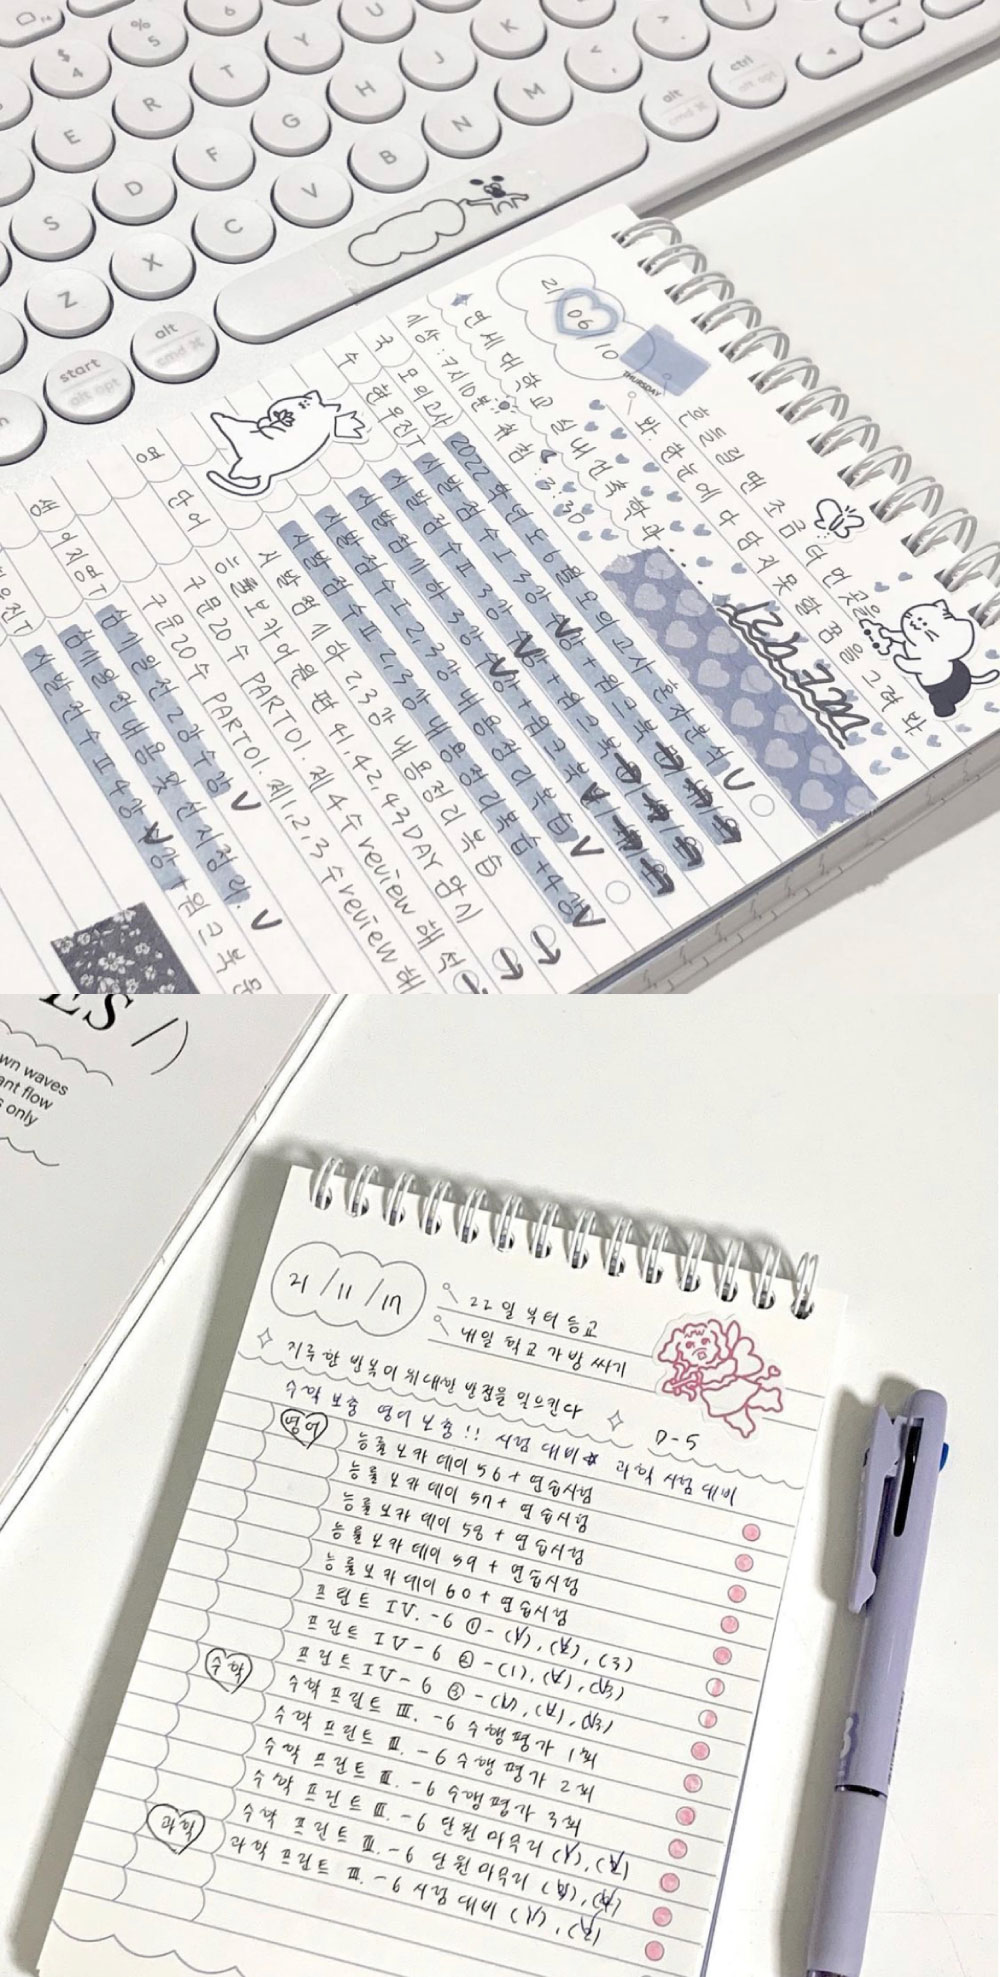 % 5
6
U
K
$ 4
R
T
Y
H
J
M
E
D
F
G
B
N
S
X
C
V
Z
alt
cmd ⌘
ctrl
alt opt
alt
cmd ⌘
start
alt opt
21 06 10
THURSDAY
흔들릴 땐 조금 더 먼 곳을
봐. 한눈에 다 담지 못할 꿈을 그려 봐
연세대학교 실내건축학과...
기상 : 7시10분 취침 : 3:30
국 모의고사 2022학년도 6월 모의고사 혼자분석
수 현우진T 시발점 수I 3강
시발점 수II 3강
시발점 기하 3강
시발점 수I 2,3강 내용정리 복습
시발점 수II 2,3강 내용정리 복습 +4강
시발점 기하 2,3강 내용정리 복습
영 단어 능률보카어원편 41, 42, 43DAY 암시
구문20수 PART01. 제4수 review 해석
구문20수 PART01. 제1,2,3수 review 해
생
ES /)
wn waves
ant flow
s only
21 / 11 / 17
22일부터 등교
내일 학교 가방 싸기
지루한 반복이 위대한 반전을 일으킨다
D-5
수학 보충 영어 보충!! 시험 대비☆ 과학 시험대비
영어
능률보카 데이 56 + 연습시험
능률보카 데이 57 + 연습시험
능률보카 데이 58 + 연습시험
능률보카 데이 59 + 연습시험
능률보카 데이 60 + 연습시험
프린트 IV. -6 ① - (1), (2), (3)
프린트 IV - 6 ② - (1), (2), (3)
프린트 IV - 6 ③ - (1), (2), (3)
수학
수학 프린트 III. -6 수행평가 1회
수학 프린트 III. -6 수행평가 2회
수학 프린트 III. -6 수행평가 3회
수학 프린트 III. -6 단원 마무리 (1), (2)
수학 프린트 III. -6 단원 마무리 (3), (4)
과학
과학 프린트 III. -6 시험 대비 (1), (2)